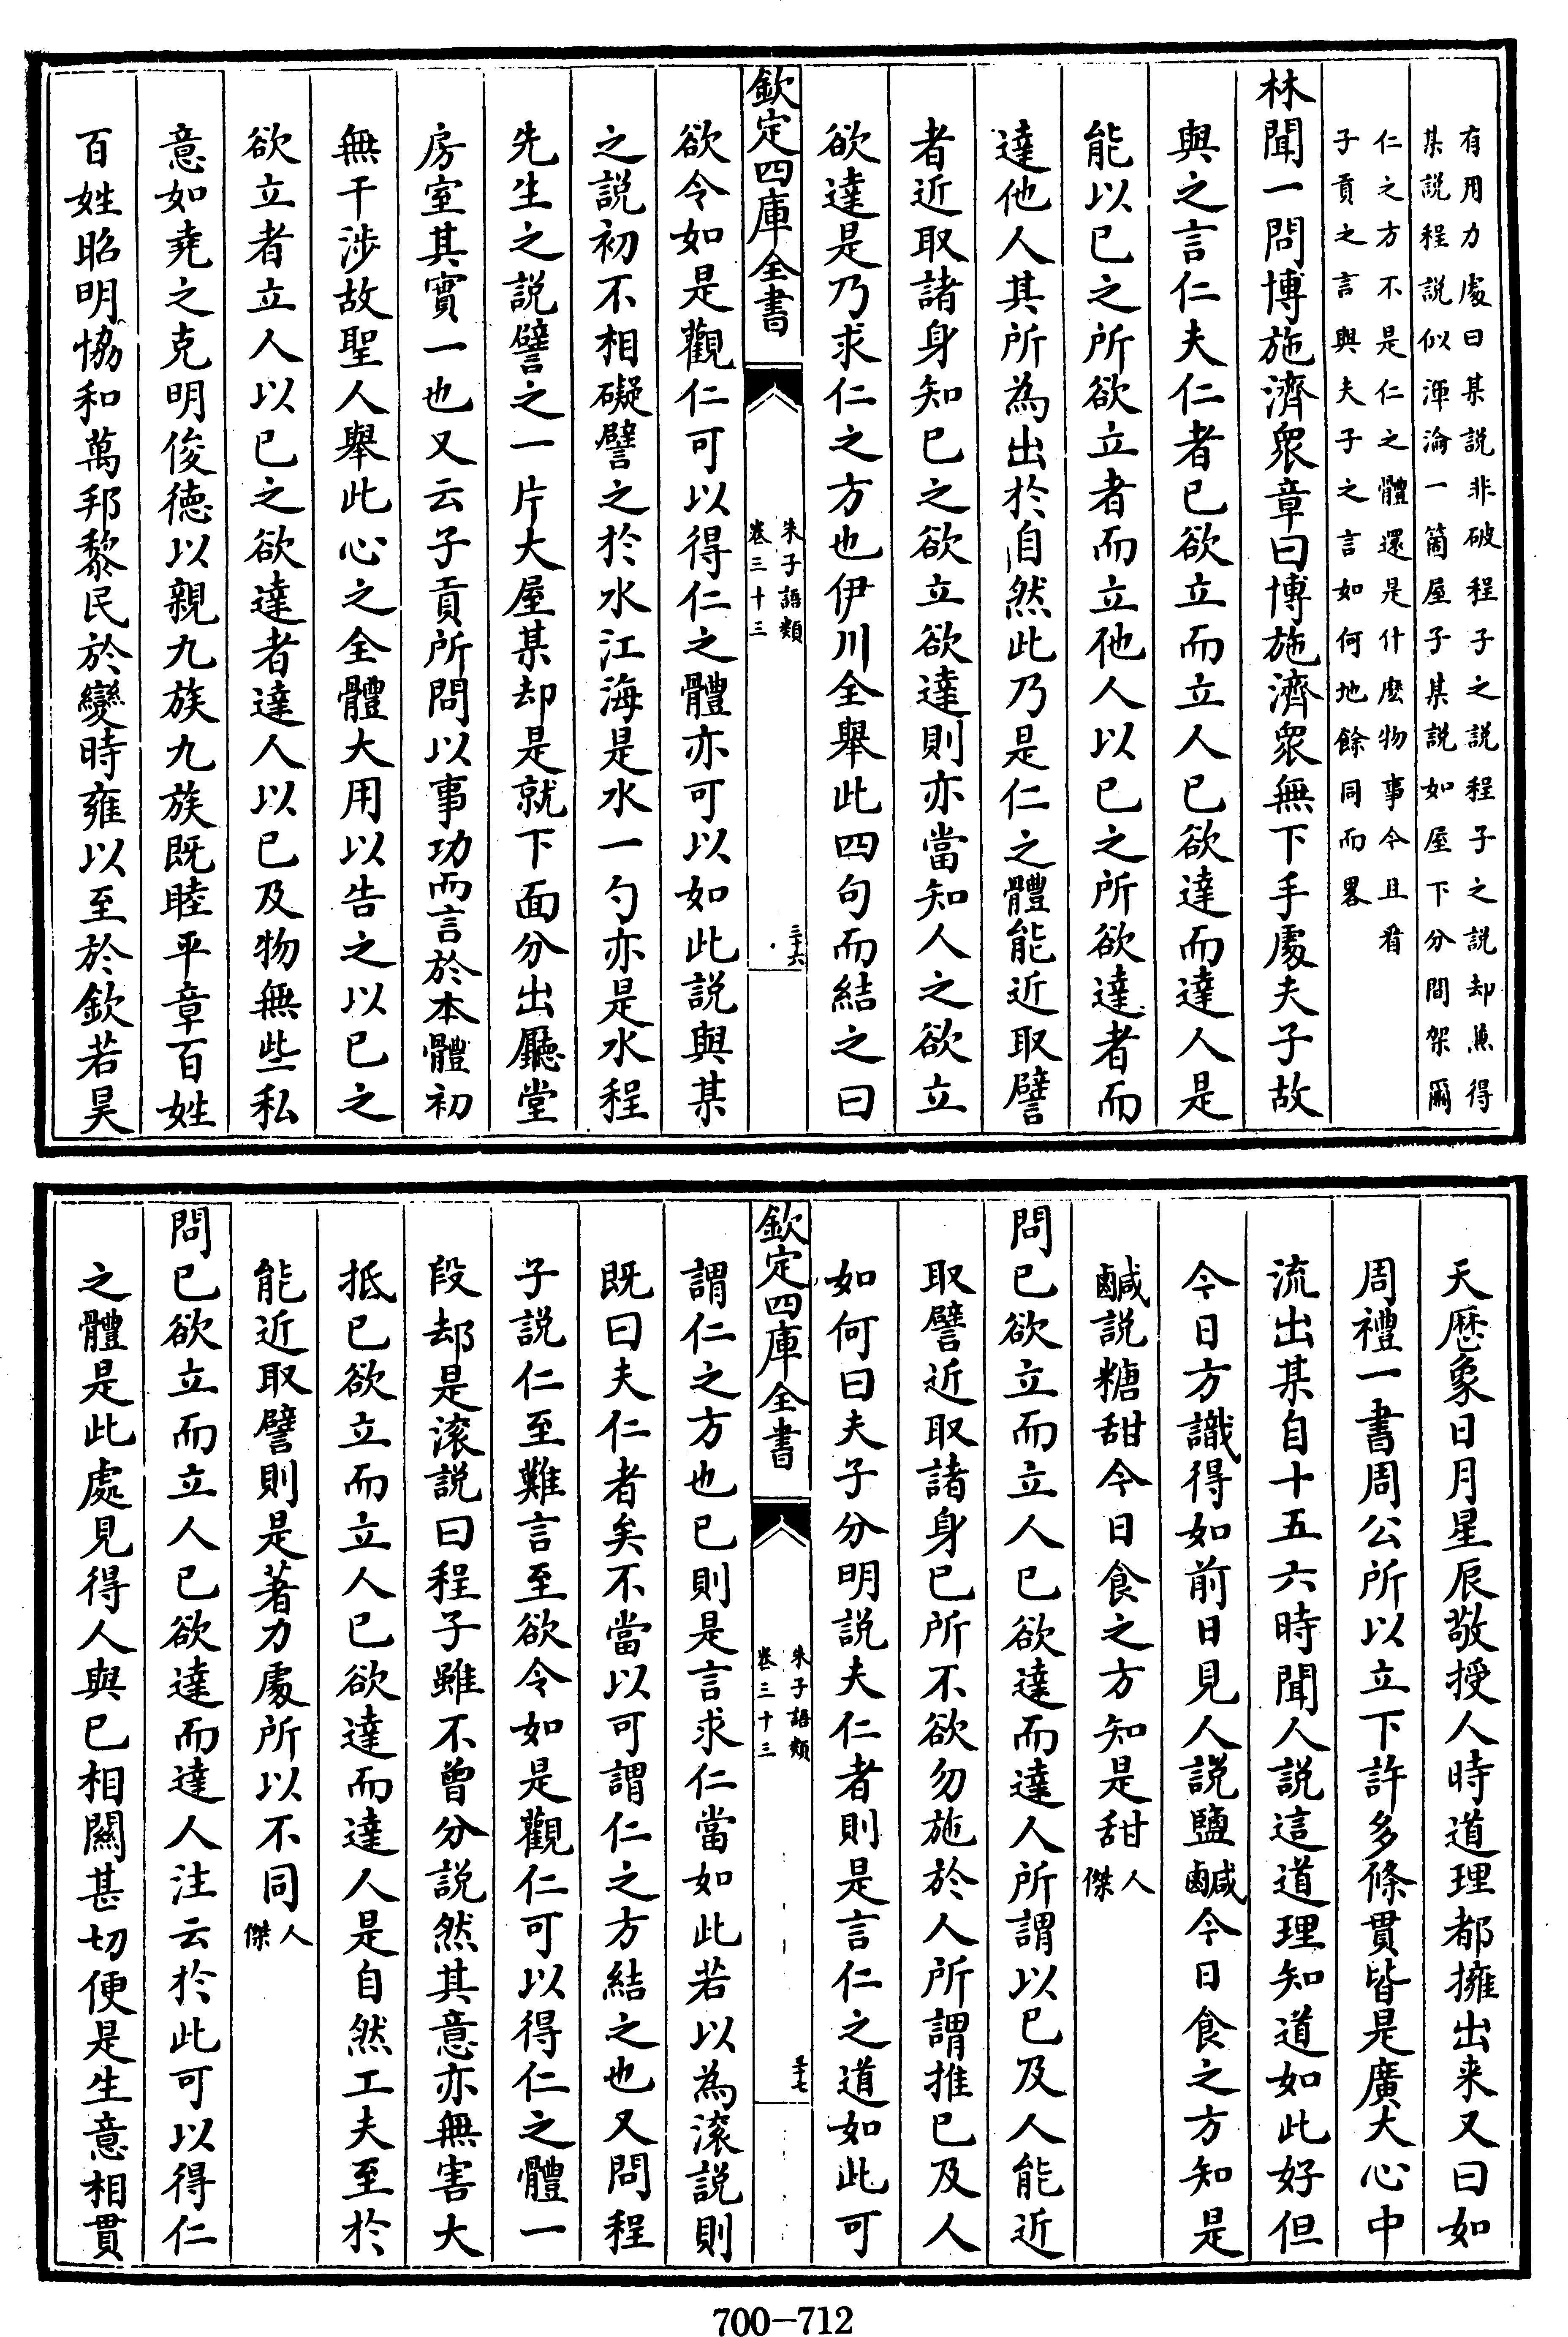 有用力處曰某説非破程子之説程子之説却兼得
某説程説似渾淪一箇屋子某説如屋下分間架爾
仁之方不是仁之體還是什麽物事今且看
子貢之言與夫子之言如何地餘同而畧
林聞一問博施濟衆章曰博施濟衆無下手處夫子故
與之言仁夫仁者已欲立而立人已欲達而達人是
能以已之所欲立者而立他人以已之所欲達者而
達他人其所為出於自然此乃是仁之體能近取譬
者近取諸身知已之欲立欲達則亦當知人之欲立
欲達是乃求仁之方也伊川全舉此四句而結之曰
欽定四庫全書
朱子語類
卷三十三
三十六
欲令如是觀仁可以得仁之體亦可以如此説與某
之説初不相礙譬之於水江海是水一勺亦是水程
先生之説譬之一片大屋某却是就下面分出廳堂
房室其實一也又云子貢所問以事功而言於本體初
無干涉故聖人舉此心之全體大用以告之以已之
欲立者立人以已之欲達者達人以已及物無些私
意如堯之克明俊德以親九族九族既睦平章百姓
百姓昭明恊和萬邦黎民於變時雍以至於欽若昊
天厯象日月星辰敬授人時道理都擁出来又曰如
周禮一書周公所以立下許多條貫皆是廣大心中
流出某自十五六時聞人説這道理知道如此好但
今日方識得如前日見人説鹽鹹今日食之方知是
鹹説糖甜今日食之方知是甜人傑
問已欲立而立人已欲達而達人所謂以已及人能近
取譬近取諸身已所不欲勿施於人所謂推已及人
如何曰夫子分明説夫仁者則是言仁之道如此可
欽定四庫全書
朱子語類
卷三十三
三十七
謂仁之方也已則是言求仁當如此若以為滚説則
既曰夫仁者矣不當以可謂仁之方結之也又問程
子説仁至難言至欲令如是觀仁可以得仁之體一
段却是滚説曰程子雖不曾分説然其意亦無害大
抵已欲立而立人已欲達而達人是自然工夫至於
能近取譬則是著力處所以不同人傑
問已欲立而立人已欲達而達人注云於此可以得仁
之體是此處見得人與已相關甚切便是生意相貫
700-712